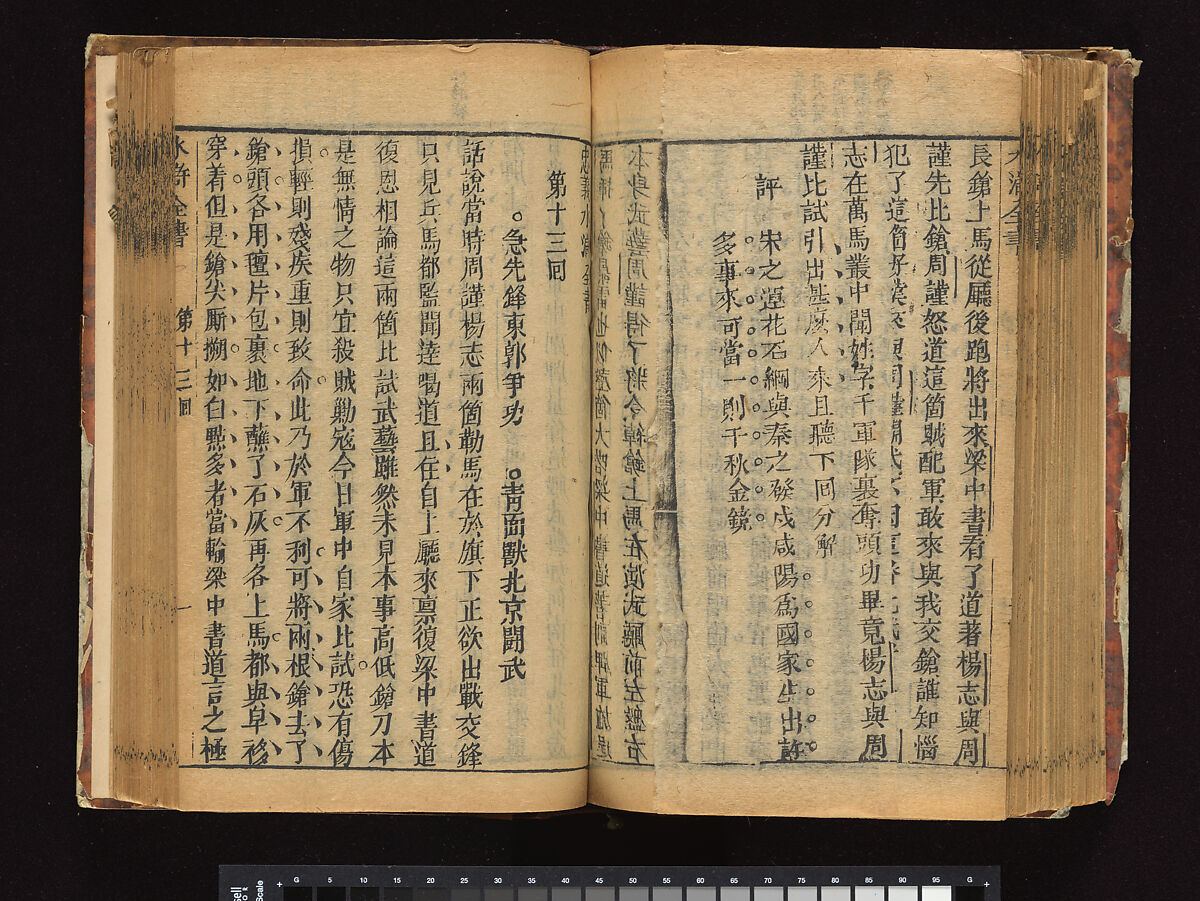 長鎗上馬從廳後跑將出來梁中書看了道著楊志與周
謹先比鎗周謹怒道這箇賊配軍敢來與我交鎗誰知惱
犯了這箇好漢來與周謹鬬武不因這番比試
志在萬馬叢中聞姓字千軍隊裏奪頭功畢竟楊志與周
謹比試引出甚麼人來且聽下回分解
評
宋之運花石綱與秦之發戍咸陽爲國家生出許
多事來可當一則千秋金鏡
本身武藝周謹得了將令綽鎗上馬在演武廳前左盤右
第十三回
急先鋒東郭爭功
青面獸北京鬪武
話說當時周謹楊志兩箇勒馬在於旗下正欲出戰交鋒
只見兵馬都監聞達喝道且住自上廳來禀復梁中書道
復恩相論這兩箇比試武藝雖然未見本事高低鎗刀本
是無情之物只宜殺賊勦寇今日軍中自家比試恐有傷
損輕則殘疾重則致命此乃於軍不利可將兩根鎗去了
鎗頭各用氊片包裹地下蘸了石灰再各上馬都與皁衫
穿着但是鎗尖厮搠如白點多者當輸梁中書道言之極
水滸全書
第十三回
一
G 5 10 15 20 25 30 35 40 45 50 55 60 65 70 75 80 85 90 95 G